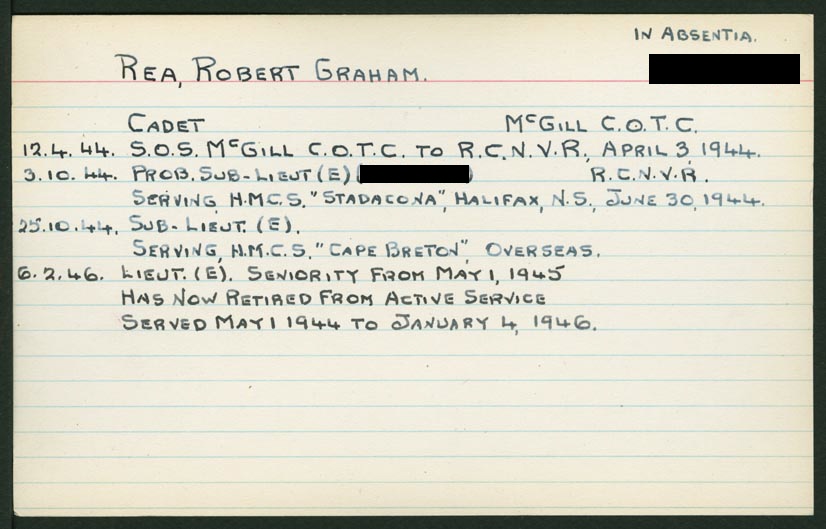 IN ABSENTIA.
REA, ROBERT GRAHAM.
CADET McGILL C.O.T.C.
12.4.44. S.O.S. McGILL C.O.T.C. TO R.C.N.V.R., APRIL 3, 1944.
3.10.44. PROB. SUB-LIEUT (E) ( ) R.C.N.V.R.
SERVING, H.M.C.S. "STADACONA", HALIFAX, N.S., JUNE 30, 1944.
25.10.44. SUB-LIEUT. (E).
SERVING, H.M.C.S. "CAPE BRETON", OVERSEAS.
6.2.46. LIEUT. (E). SENIORITY FROM MAY 1, 1945
HAS NOW RETIRED FROM ACTIVE SERVICE
SERVED MAY 1 1944 TO JANUARY 4, 1946.